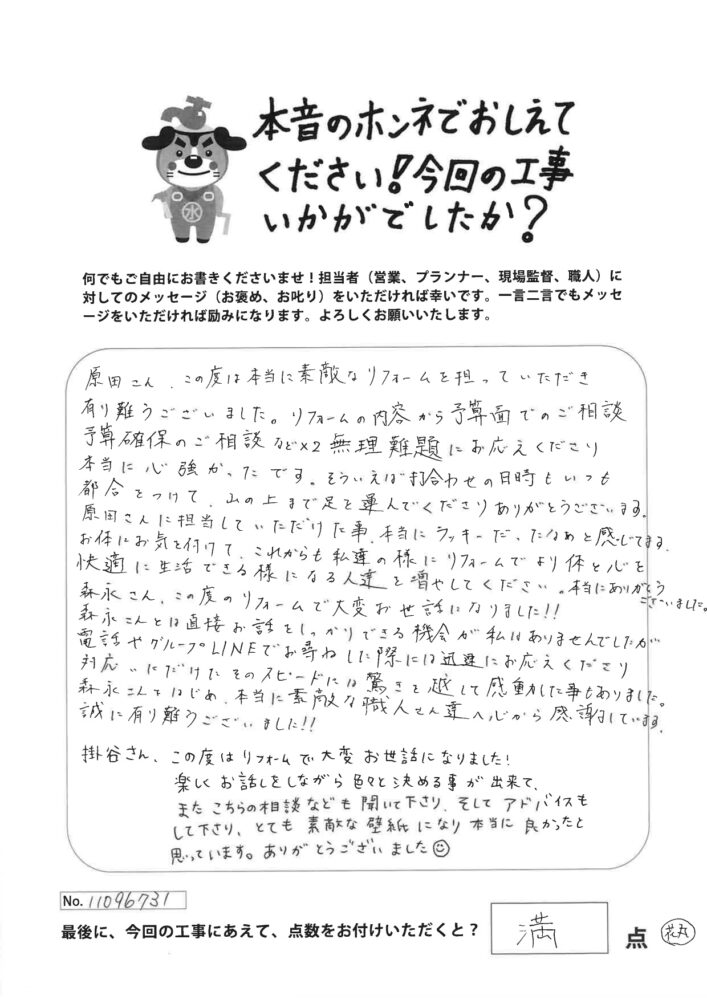 本音のホンネでおしえて
ください!今回の工事
いかがでしたか?
水
何でもご自由にお書きくださいませ!担当者(営業、プランナー、現場監督、職人)に
対してのメッセージ(お褒め、お叱り)をいただければ幸いです。一言二言でもメッセ
ージをいただければ励みになります。よろしくお願いいたします。
原田さん、この度は本当に素敵なリフォームを担っていただき
有り難うございました。リフォームの内容から予算面でのご相談
予算確保のご相談などなど無理難題にお応えくださり
本当に心強かったです。そういえば打合わせの日時もいつも
都合をつけて、山の上まで足を運んでくださりありがとうございます。
原田さんに担当していただけた事、本当にラッキーだったなぁと感じてます。
お体にお気を付けて、これからも私達の様にリフォームでより体と心を
快適に生活できる様になる人達を増やしてください。本当にありがとう
ございました。
森永さん、この度のリフォームで大変お世話になりました!!
森永さんとは直接お話をしっかりできる機会が私はありませんでしたが
電話やグループLINEでお尋ねした際には迅速にお応えくださり
対応いただけたそのスピードには驚きを越して感動した事もありました。
森永さんをはじめ、本当に素敵な職人さん達へ心から感謝しています。
誠に有り難うございました!!
掛谷さん、この度はリフォームで大変お世話になりました!
楽しくお話しをしながら色々と決める事が出来て、
またこちらの相談なども聞いて下さり、そしてアドバイスも
して下さり、とても素敵な壁紙になり本当に良かったと
思っています。ありがとうございました☺
No. 11096731
最後に、今回の工事にあえて、点数をお付けいただくと? 満 点 花丸